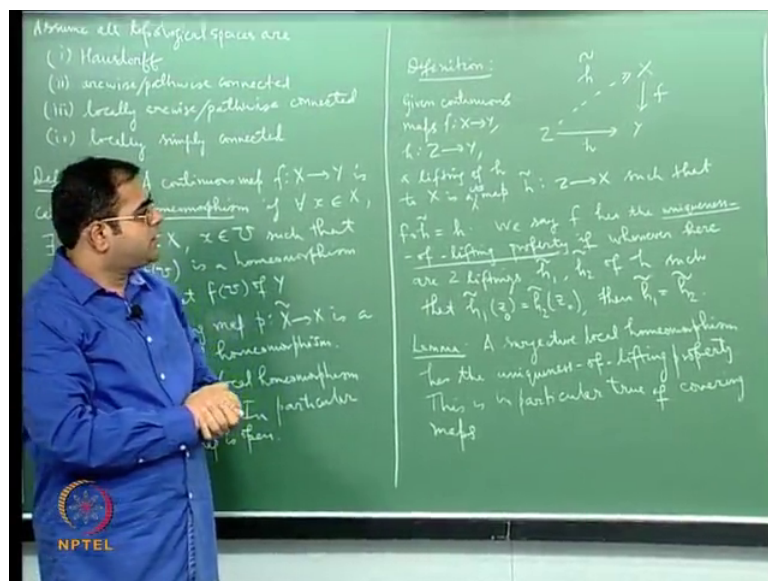 Assume all topological spaces are
(i) Hausdorff
(ii) arcwise/pathwise connected
(iii) locally arcwise/pathwise connected
(iv) locally simply connected
continuous map f: X→Y is
if ∀ x ∈ X,
X x ∈ U such that
is a homeomorphism
f(U) of Y
map p: X̃→X is a
homeomorphism.
local homeomorphism
In particular
is open.
Definition:
Given continuous
maps f: X→Y,
h: Z→Y,
a lifting of h
to X is a cts map h̃: Z→X such that
f∘h̃ = h. We say f has the uniqueness-
-of-lifting property if whenever there
are 2 liftings h̃₁, h̃₂ of h such
that h̃₁(z₀) = h̃₂(z₀), then h̃₁ = h̃₂.
Lemma: A surjective local homeomorphism
has the uniqueness-of-lifting property
This is in particular true of covering
maps.
h̃
X
f
Z
Y
h
NPTEL